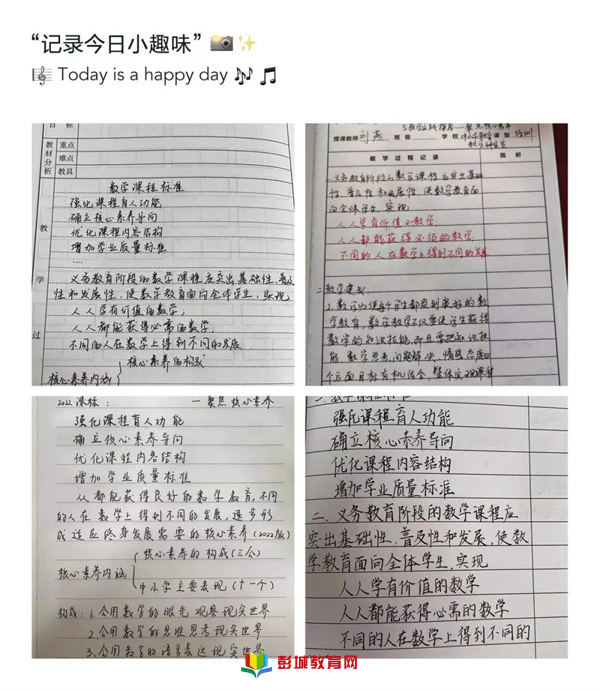 “记录今日小趣味”
Today is a happy day
目 标
教材分析
重点
难点
教具
教
学
过
数学课程标准
强化课程育人功能
确立核心素养导向
优化课程内容结构
增加学业质量标准
....
义务教育阶段的数学课程应突出基础性、普及
性和发展性,使数学教育面向全体学生,实现
人人学有价值的数学,
人人都能获得必需的数学,
不同的人在数学上得到不同的发展
核心素养的构成
核心素养内涵
授课教师
班级
学校
课型
教学过程记录
简析
义务教育阶段的数学课程应突出基础
性、普及性和发展性,使数学教育面
向全体学生,实现
人人学有价值的数学
人人都能获得必需的数学
不同的人在数学上得到不同的发展
二、教学建议
教学教育,数学教学不仅要使学生获得
数学的知识技能,而且要把知识技
能、数学思考、问题解决、情感态度四
个方面目标有机结合,整体实现课程
2022课标: — 聚焦核心素养
强化课程育人功能
确立核心素养导向
优化课程内容结构
增加学业质量标准
人人都能获得良好的数学教育,不同
的人在数学上得到不同的发展,逐步形
成适应终身发展需要的核心素养(2022版)
核心素养的构成(三会)
核心素养内涵
中小学主要表现(十一个)
构成:1.会用数学的眼光观察现实世界
2.会用数学的思维思考现实世界
3.会用数学的语言表达现实世界
强化课程育人功能
确立核心素养导向
优化课程内容结构
增加学业质量标准
二、义务教育阶段的数学课程应
突出基础性、普及性和发展,使数
学教育面向全体学生,实现
人人学有价值的数学
人人都能获得必需的数学
不同的人在数学上得到不同的
彭城教育网